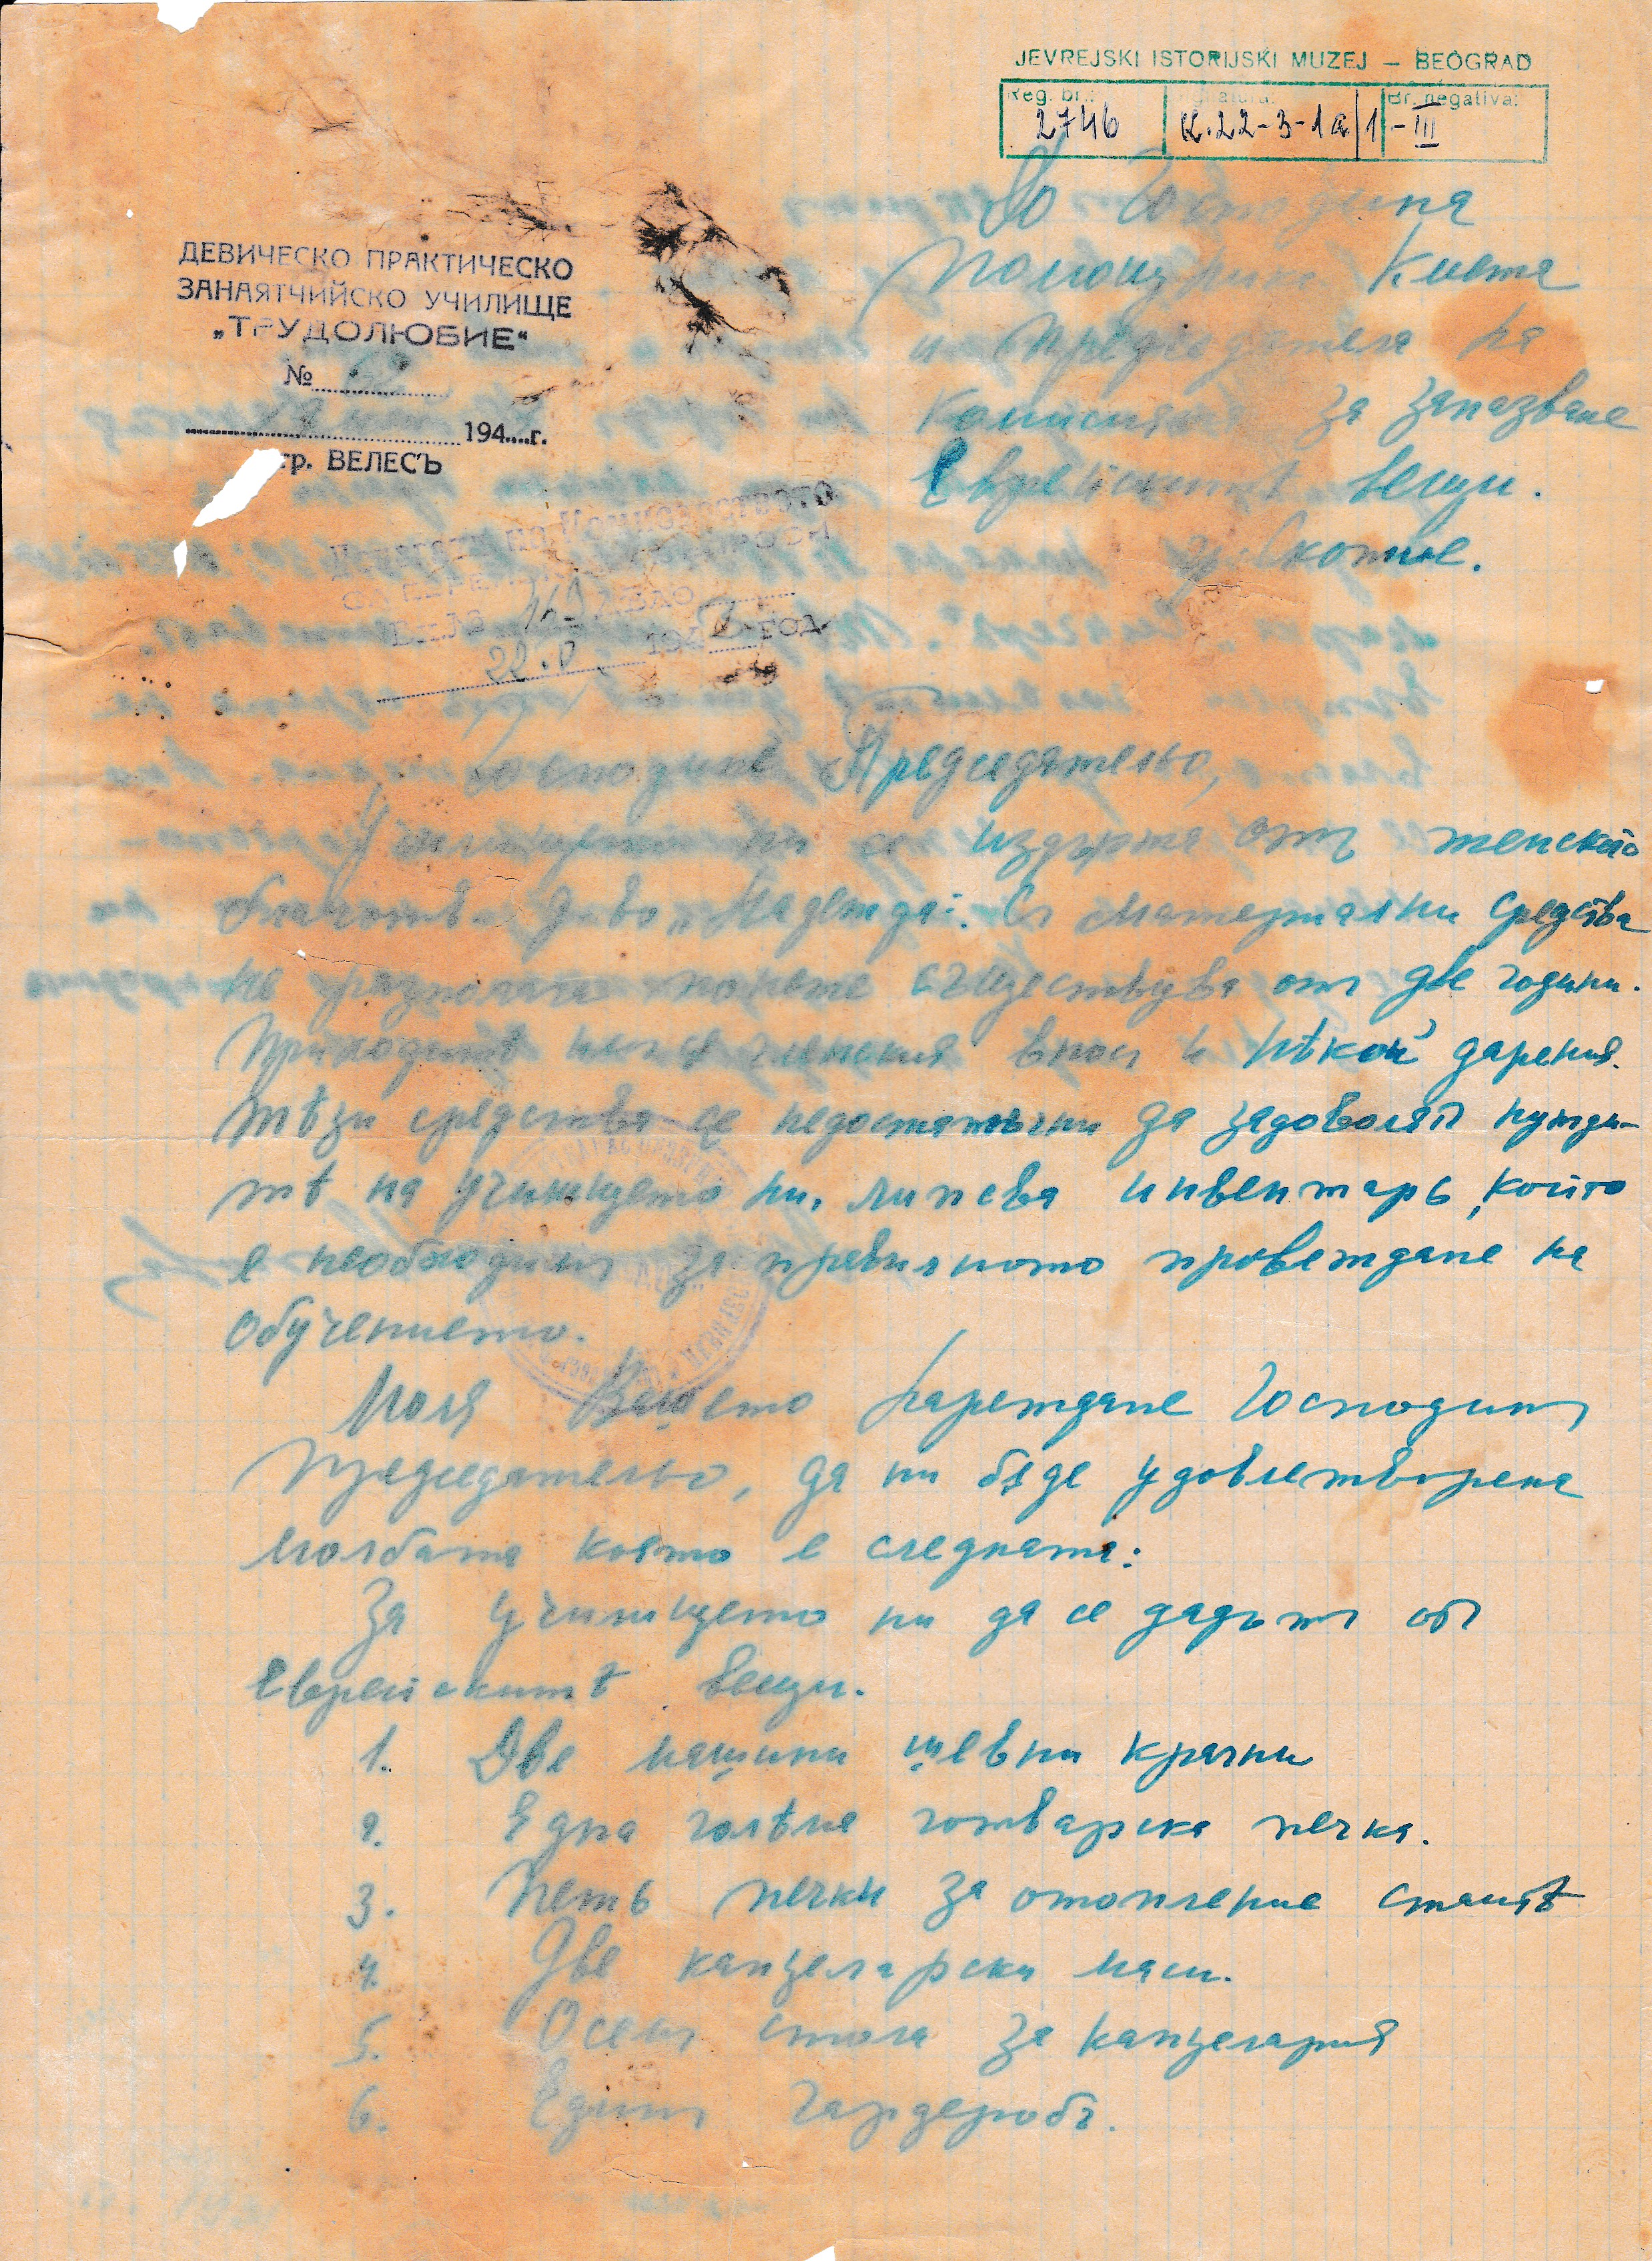 JEVREJSKI ISTORIJSKI MUZEJ – BEOGRAD
Reg. br.: Signatura: Br. negativa:
2746 K.22-3-1a/1-III
До Господина
Помощник Кмета
и Председателя на
Комисията за запазване
Еврейскитѣ вещи.
гр. Скопие.
ДЕВИЧЕСКО ПРАКТИЧЕСКО
ЗАНАЯТЧИЙСКО УЧИЛИЩЕ
„ТРУДОЛЮБИЕ“
№
194....г.
гр. ВЕЛЕСЪ
Делегатъ на Комисарството
ДЕЛО
194 3 ГОД
Господине Председателю,
Училището ни се издържа отъ женското
благотв. д-во „Надежда“. Съ материални средства
не разполага понеже съществува отъ две години.
Приходитѣ ни сѫ членския вносъ и нѣкой дарения.
Тѣзи средства сѫ недостатъчни да задоволятъ нужди-
тѣ на училището ни, липсва инвентарь, който
е необходимъ за правилното провеждане на
обучението.
Моля Вашето нареждане Господинъ
Председателю, да ни бѫде удовлетворена
молбата която е следната:
За училището ни да се дадатъ отъ
Еврейскитѣ вещи.
1. Две машини шевни крачни
2. Една голѣма готварска печка.
3. Петь печки за отопление стаитѣ
4. Две канцеларски маси.
5. Осемъ стола за канцелария
6. Единъ гардеробъ.